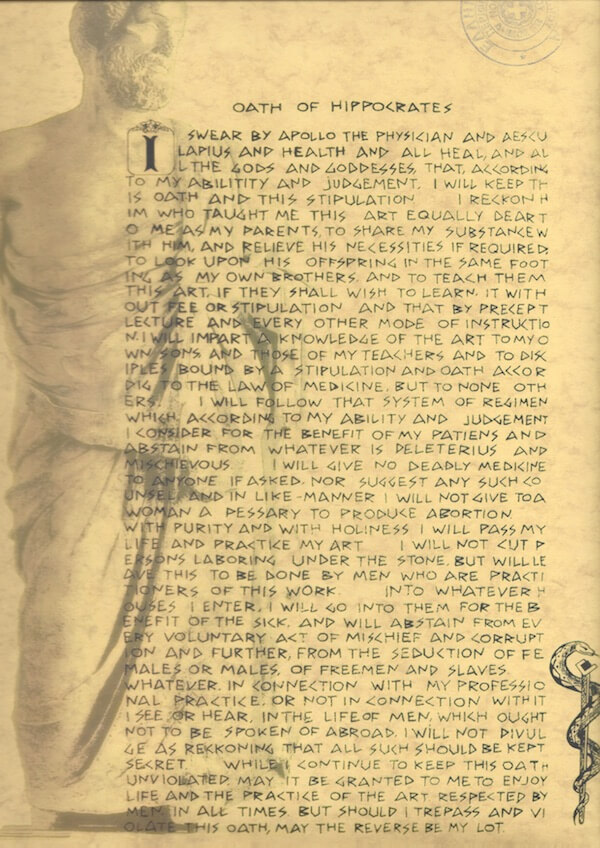 OATH OF HIPPOCRATES
I SWEAR BY APOLLO THE PHYSICIAN AND AESCU
LAPIUS AND HEALTH AND ALL HEAL, AND AL
L THE GODS AND GODDESSES, THAT, ACCORDING
TO MY ABILITITY AND JUDGEMENT, I WILL KEEP TH
IS OATH AND THIS STIPULATION I RECKON H
IM WHO TAUGHT ME THIS ART EQUALLY DEAR T
O ME AS MY PARENTS, TO SHARE MY SUBSTANCE W
ITH HIM, AND RELIEVE HIS NECESSITIES IF REQUIRED.
TO LOOK UPON HIS OFFSPRING IN THE SAME FOOT
ING AS MY OWN BROTHERS, AND TO TEACH THEM
THIS ART, IF THEY SHALL WISH TO LEARN IT WITH
OUT FEE OR STIPULATION AND THAT BY PRECEPT
LECTURE AND EVERY OTHER MODE OF INSTRUCTIO
N. I WILL IMPART A KNOWLEDGE OF THE ART TO MY O
WN SONS AND THOSE OF MY TEACHERS AND TO DISC
IPLES BOUND BY A STIPULATION AND OATH ACCOR
DIG TO THE LAW OF MEDICINE, BUT TO NONE OTH
ERS. I WILL FOLLOW THAT SYSTEM OF REGIMEN
WHICH, ACCORDING TO MY ABILITY AND JUDGEMENT
I CONSIDER FOR THE BENEFIT OF MY PATIENS AND
ABSTAIN FROM WHATEVER IS DELETERIUS AND
MISCHIEVOUS I WILL GIVE NO DEADLY MEDICINE
TO ANYONE IF ASKED, NOR SUGGEST ANY SUCH CO
UNSEL, AND IN LIKE-MANNER I WILL NOT GIVE TO A
WOMAN A PESSARY TO PRODUCE ABORTION
WITH PURITY AND WITH HOLINESS I WILL PASS MY
LIFE AND PRACTICE MY ART I WILL NOT CUT P
ERSONS LABORING UNDER THE STONE, BUT WILL LE
AVE THIS TO BE DONE BY MEN WHO ARE PRACTI
TIONERS OF THIS WORK. INTO WHATEVER H
OUSES I ENTER, I WILL GO INTO THEM FOR THE B
ENEFIT OF THE SICK, AND WILL ABSTAIN FROM EV
ERY VOLUNTARY ACT OF MISCHIEF AND CORRUPT
ION AND FURTHER, FROM THE SEDUCTION OF FE
MALES OR MALES, OF FREEMEN AND SLAVES.
WHATEVER, IN CONNECTION WITH MY PROFESSIO
NAL PRACTICE, OR NOT IN CONNECTION WITH IT
I SEE OR HEAR, IN THE LIFE OF MEN, WHICH OUGHT
NOT TO BE SPOKEN OF ABROAD, I WILL NOT DIVUL
GE AS RECKONING THAT ALL SUCH SHOULD BE KEPT
SECRET. WHILE I CONTINUE TO KEEP THIS OATH
UNVIOLATED, MAY IT BE GRANTED TO ME TO ENJOY
LIFE AND THE PRACTICE OF THE ART RESPECTED BY
MEN IN ALL TIMES. BUT SHOULD I TREPASS AND VI
OLATE THIS OATH, MAY THE REVERSE BE MY LOT.